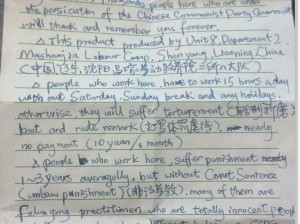 Thousands people here who are under
the persicution of the Chinese Communist Party Government
will thank and remember you forever.
△ This product produced by Unit 8, Department 2,
Mashanjia Labour Camp, Shen Yang, Liaoning, China.
(中国,辽宁,沈阳,马三家劳动教养院二所八大队)
△ people who work here have to work 15 hours a day
with out Saturday, Sunday break and any holidays,
otherwise, they will suffer torturement (酷刑折磨)
beat and rude remark (打骂体罚虐待) nearly
no payment (10 yuan / 1 month)
△ people who work here, suffer punishment
1~3 years averagelly, but without Court Sentence
(unlaw punishment) (非法劳教). many of them are
Falun gong practitioner, who are totally innocent people